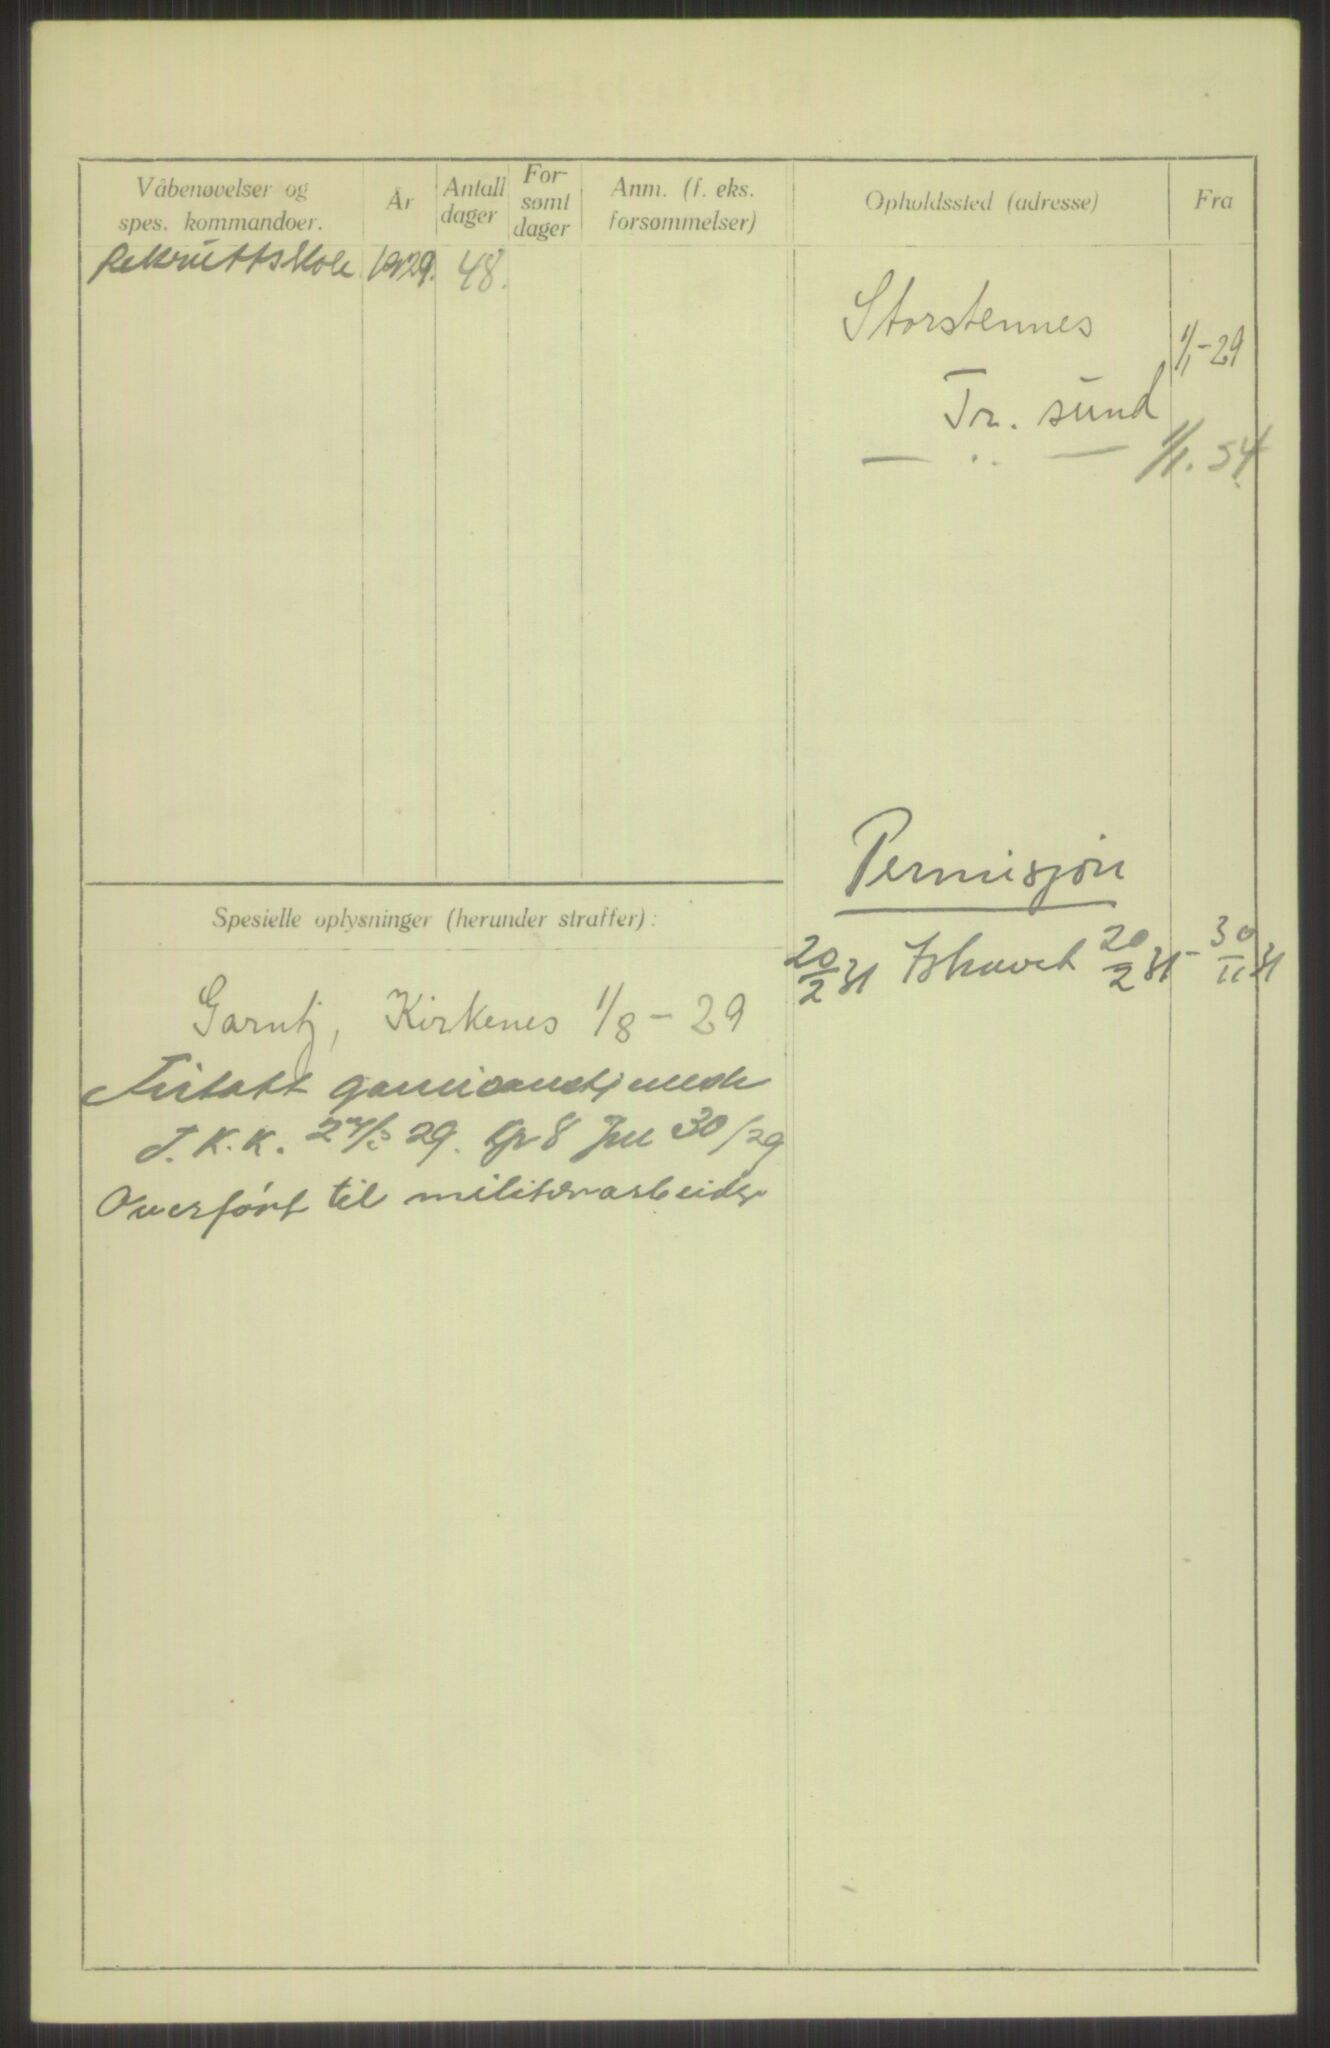 Våbenøvelser og spes. kommandoer.
År
Antall dager
Forsømt dager
Anm. (f. eks. forsømmelser)
Opholdssted (adresse)
Fra
Rekruttskole 1929. 48.
Storstennes 1/1-29
Tr. sund
— .. — 1/1. 34
Permisjon
20/2 31 Ishavet 20/2 31 - 30/11 31
Spesielle oplysninger (herunder straffer):
Garntj, Kirkenes 1/8 - 29
Fritatt garnisonstj
J. 30/29
Overført til militærarbeider